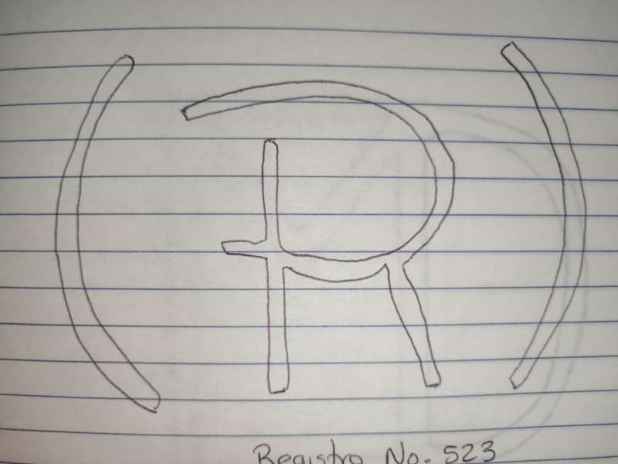 (R)
Registro No. 523